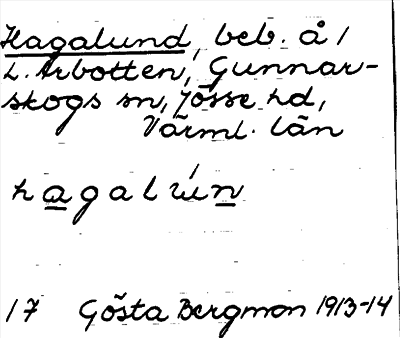 Hagalund, beb. å /
L. Arbotten, Gunnar-
skogs sn, Jösse hd,
Värml. län
hagalún
17 Gösta Bergman 1913-14